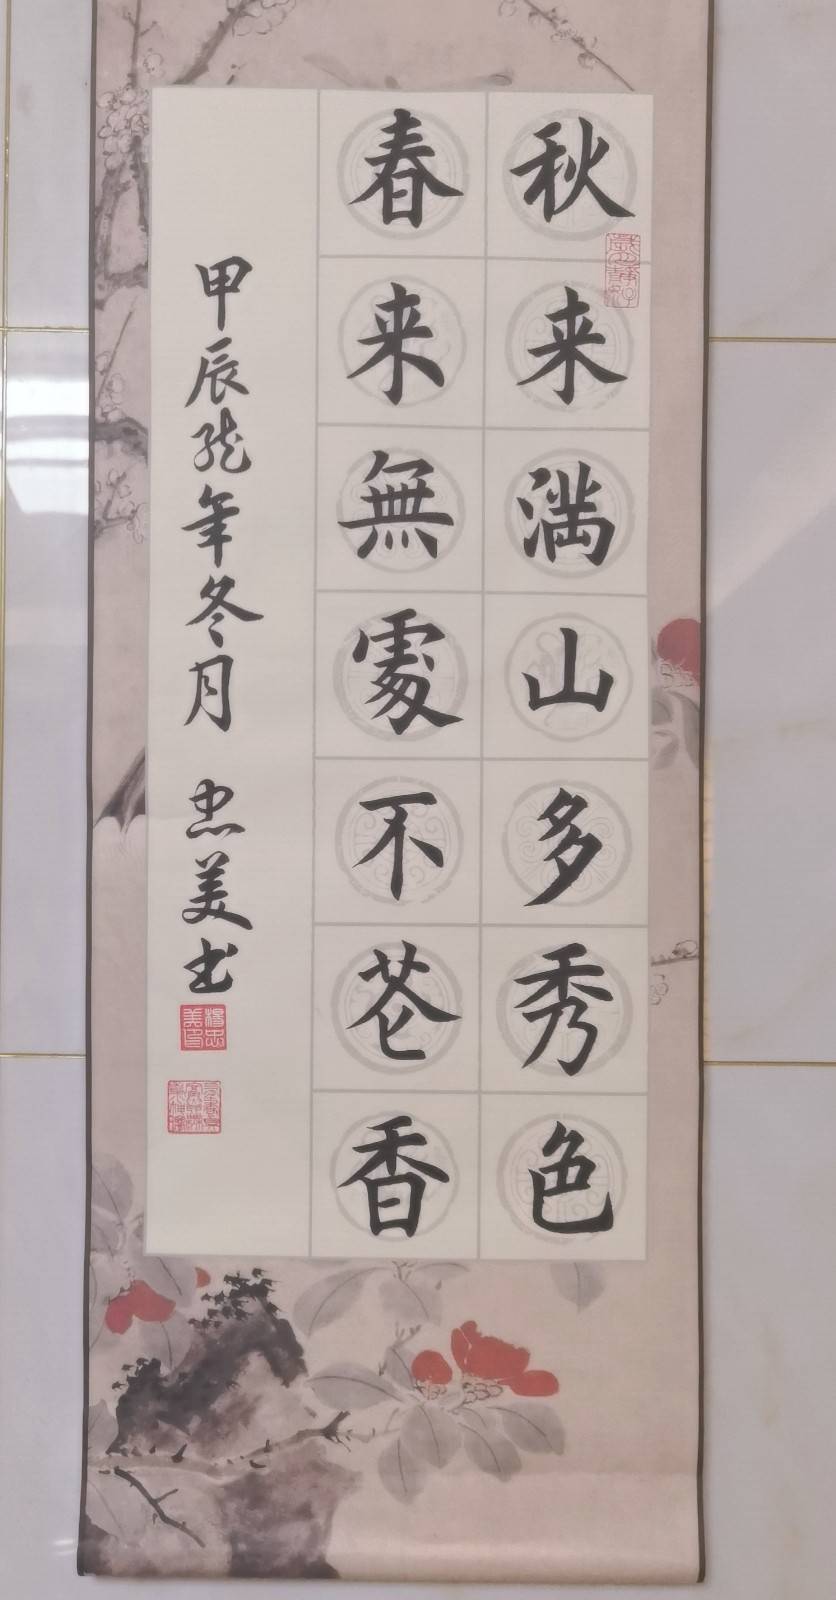 秋来满山多秀色
春来無處不花香
甲辰龙年冬月 忠美书
楊忠美印